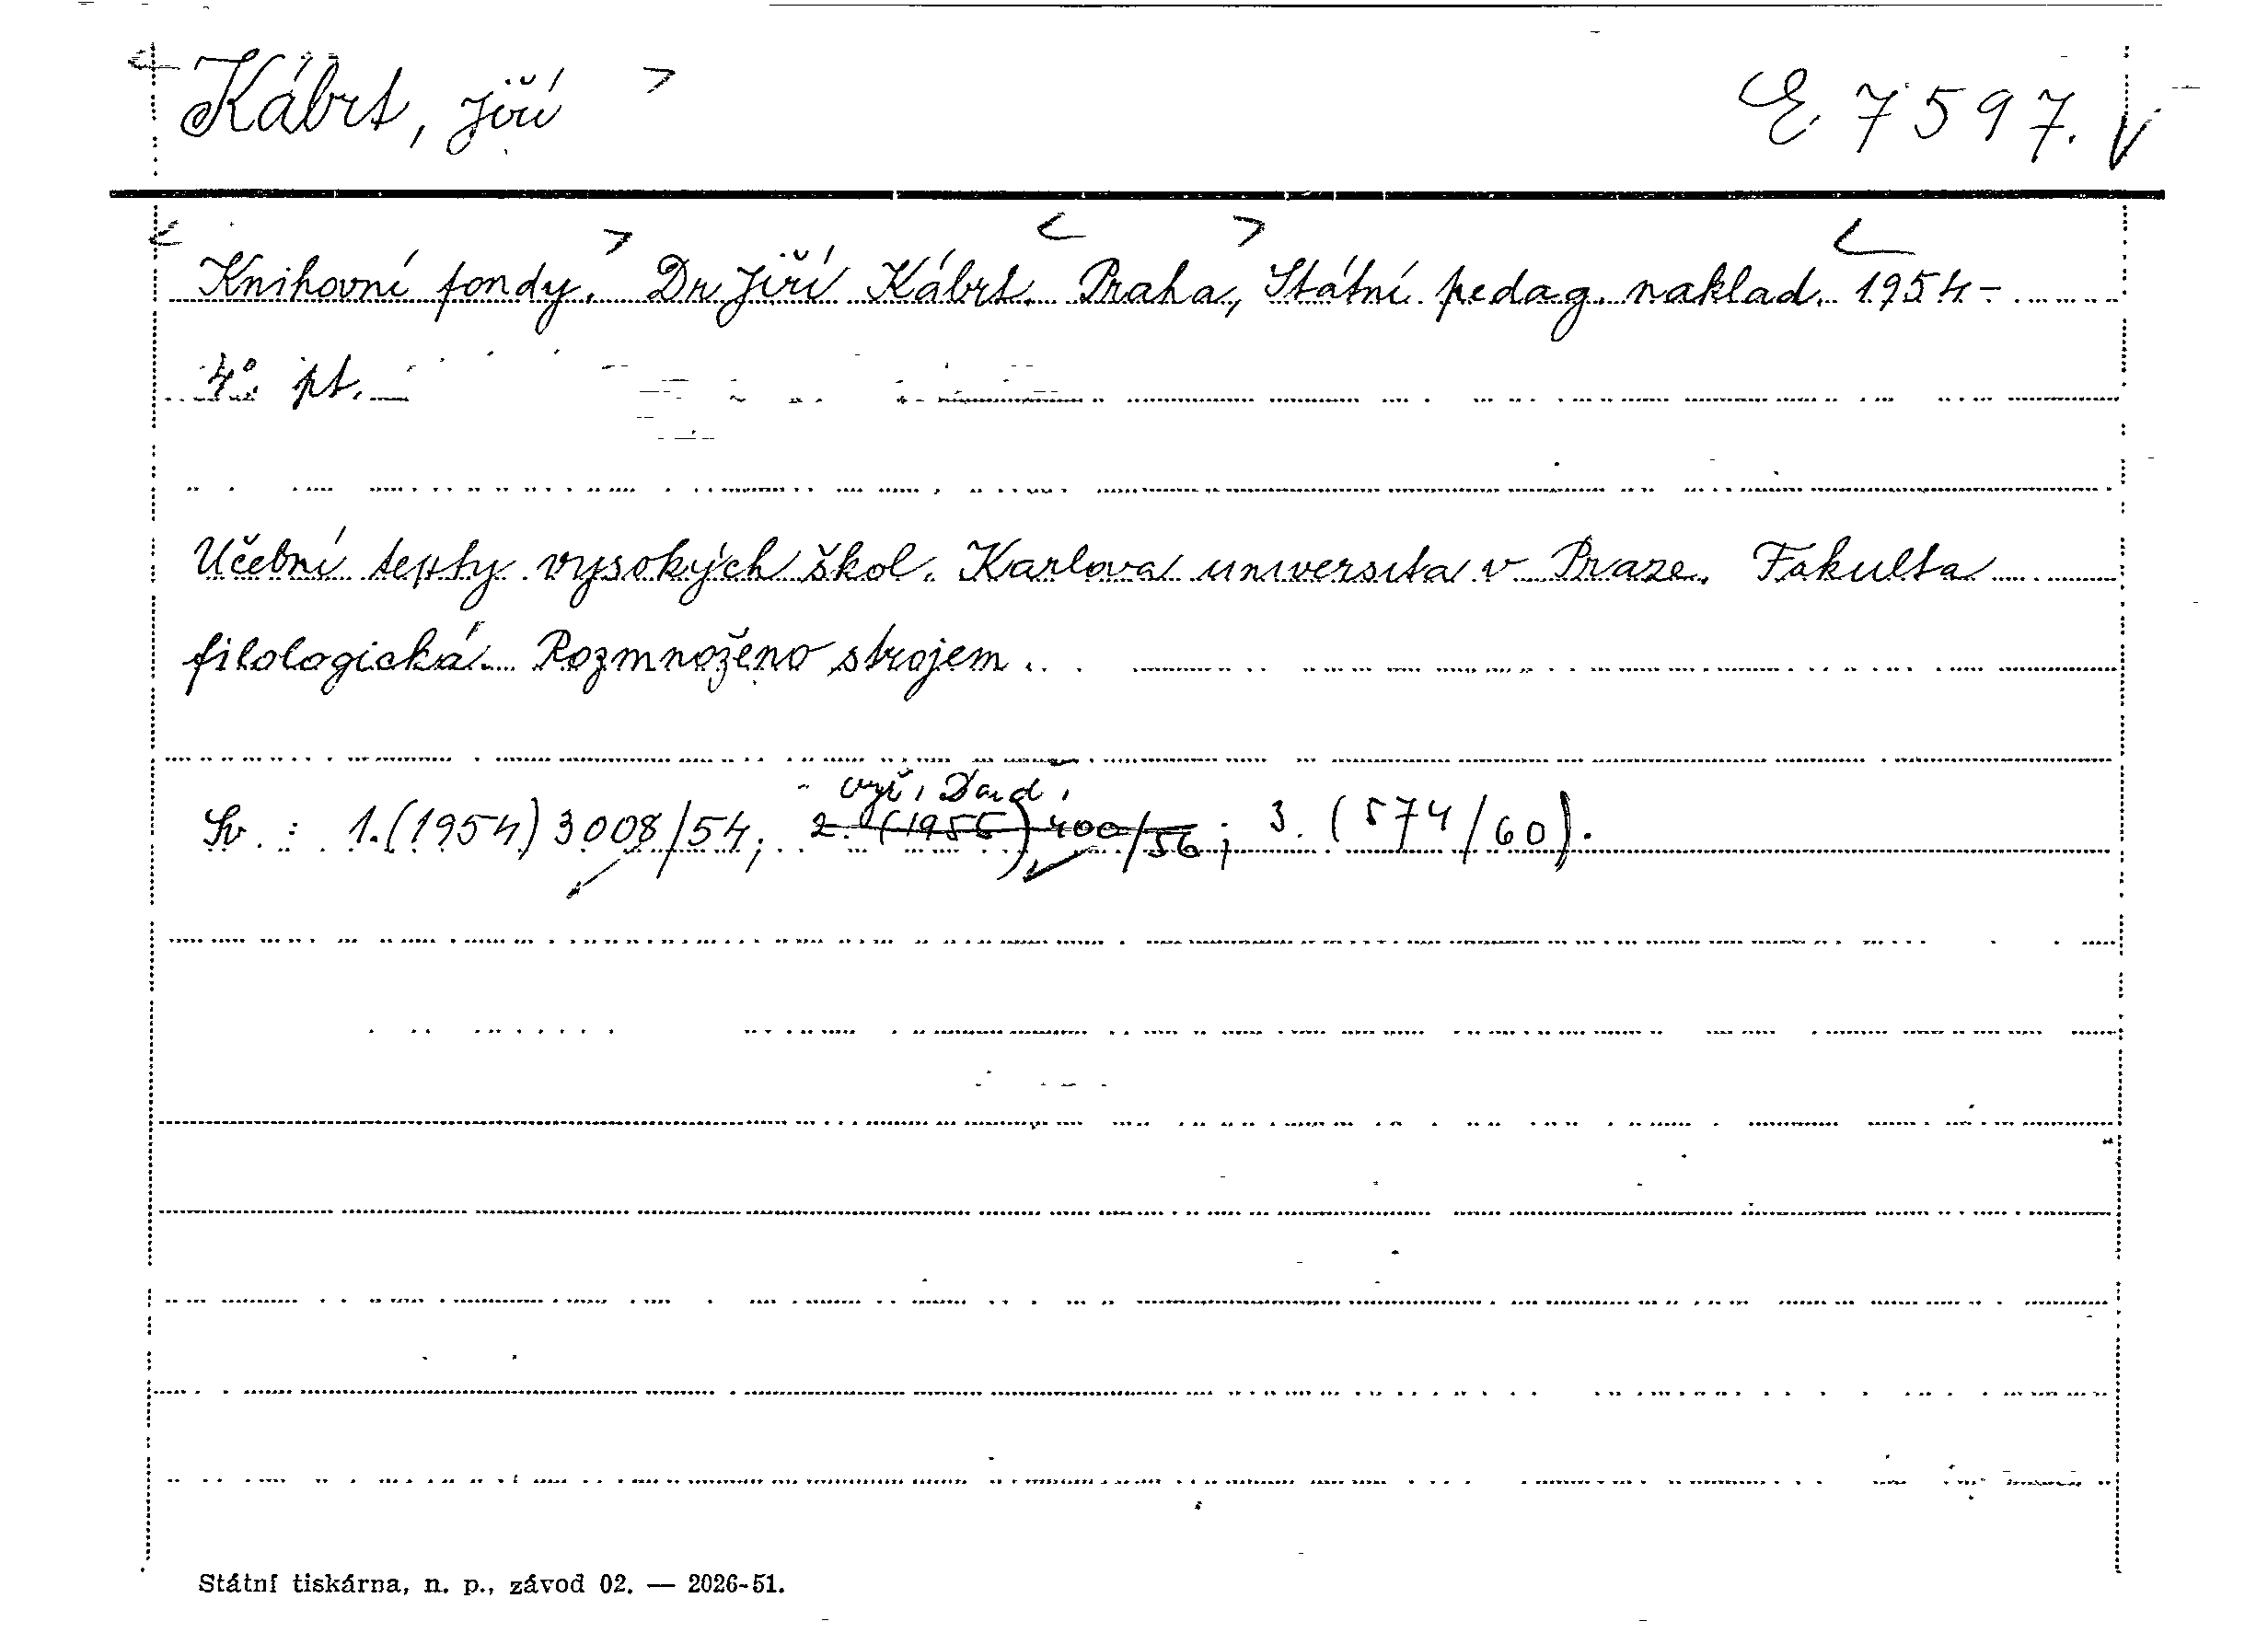 Kábrt, Jiří E 7597.
Knihovní fondy. Dr Jiří Kábrt. Praha, Státní pedag. naklad. 1954-
4°. pt.
Učební texty vysokých škol. Karlova universita v Praze. Fakulta
filologická. Rozmnoženo strojem.
Sv.: 1.(1954) 3008/54; 2. (1955) 400/56; 3. (574/60).
Státní tiskárna, n. p., závod 02. — 2026-51.